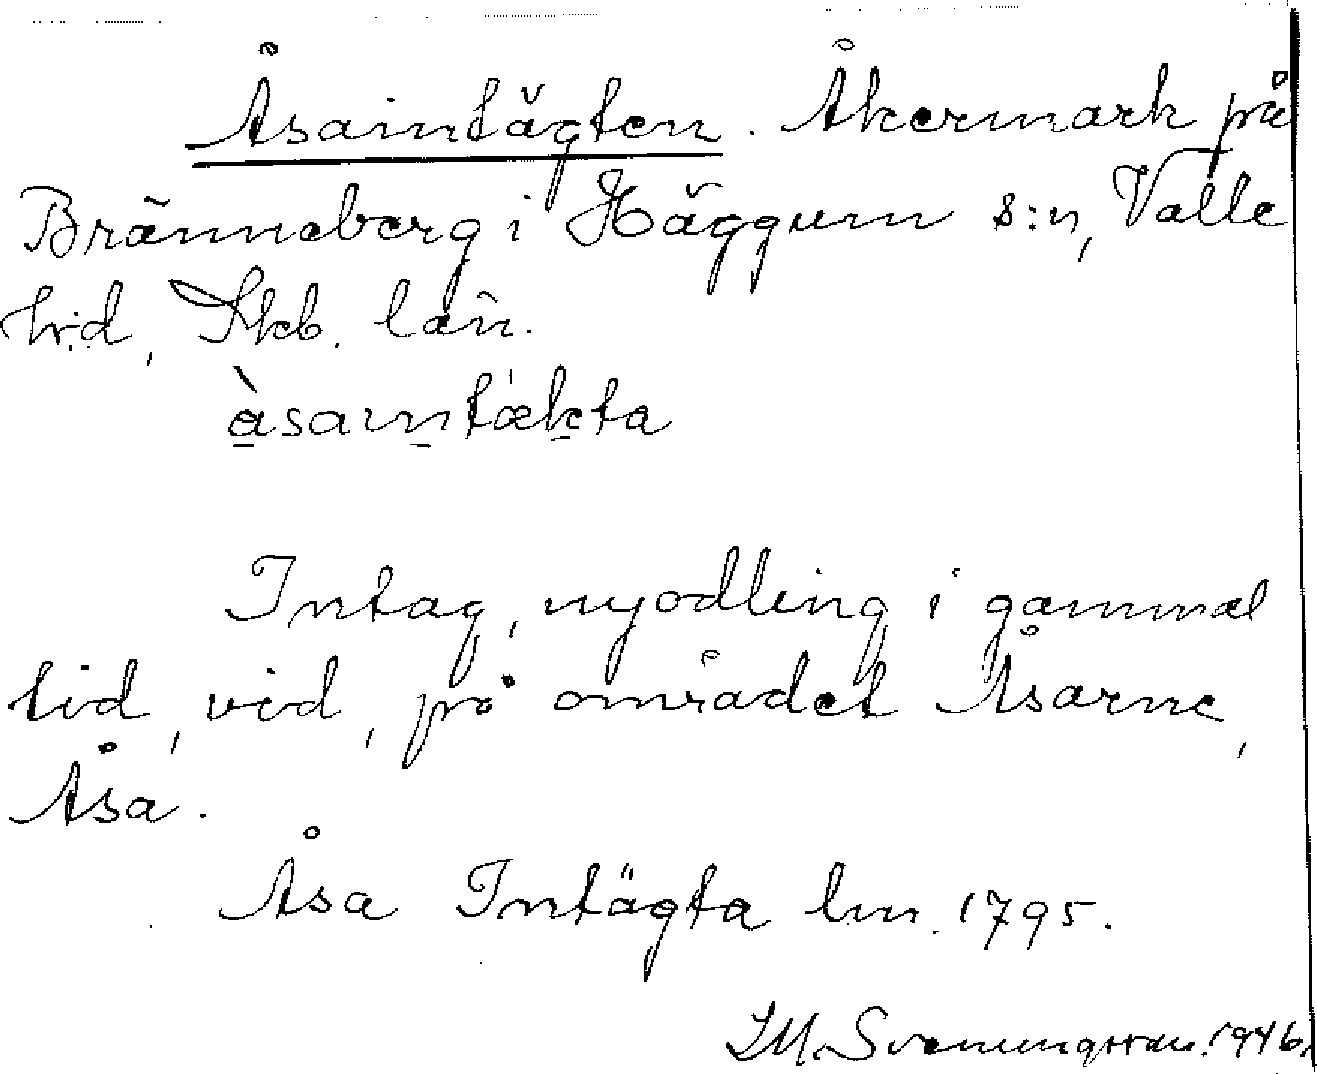 Åsaintägten. Åkermark på
Bränneberg i Häggum s:n, Valle
hd, Skb. län.
àsaintækta
Intag, nyodling i gammal
tid, vid, på området Åsarne,
Åsa.
Åsa Intägta lm. 1795.
Svenungsson 1946.